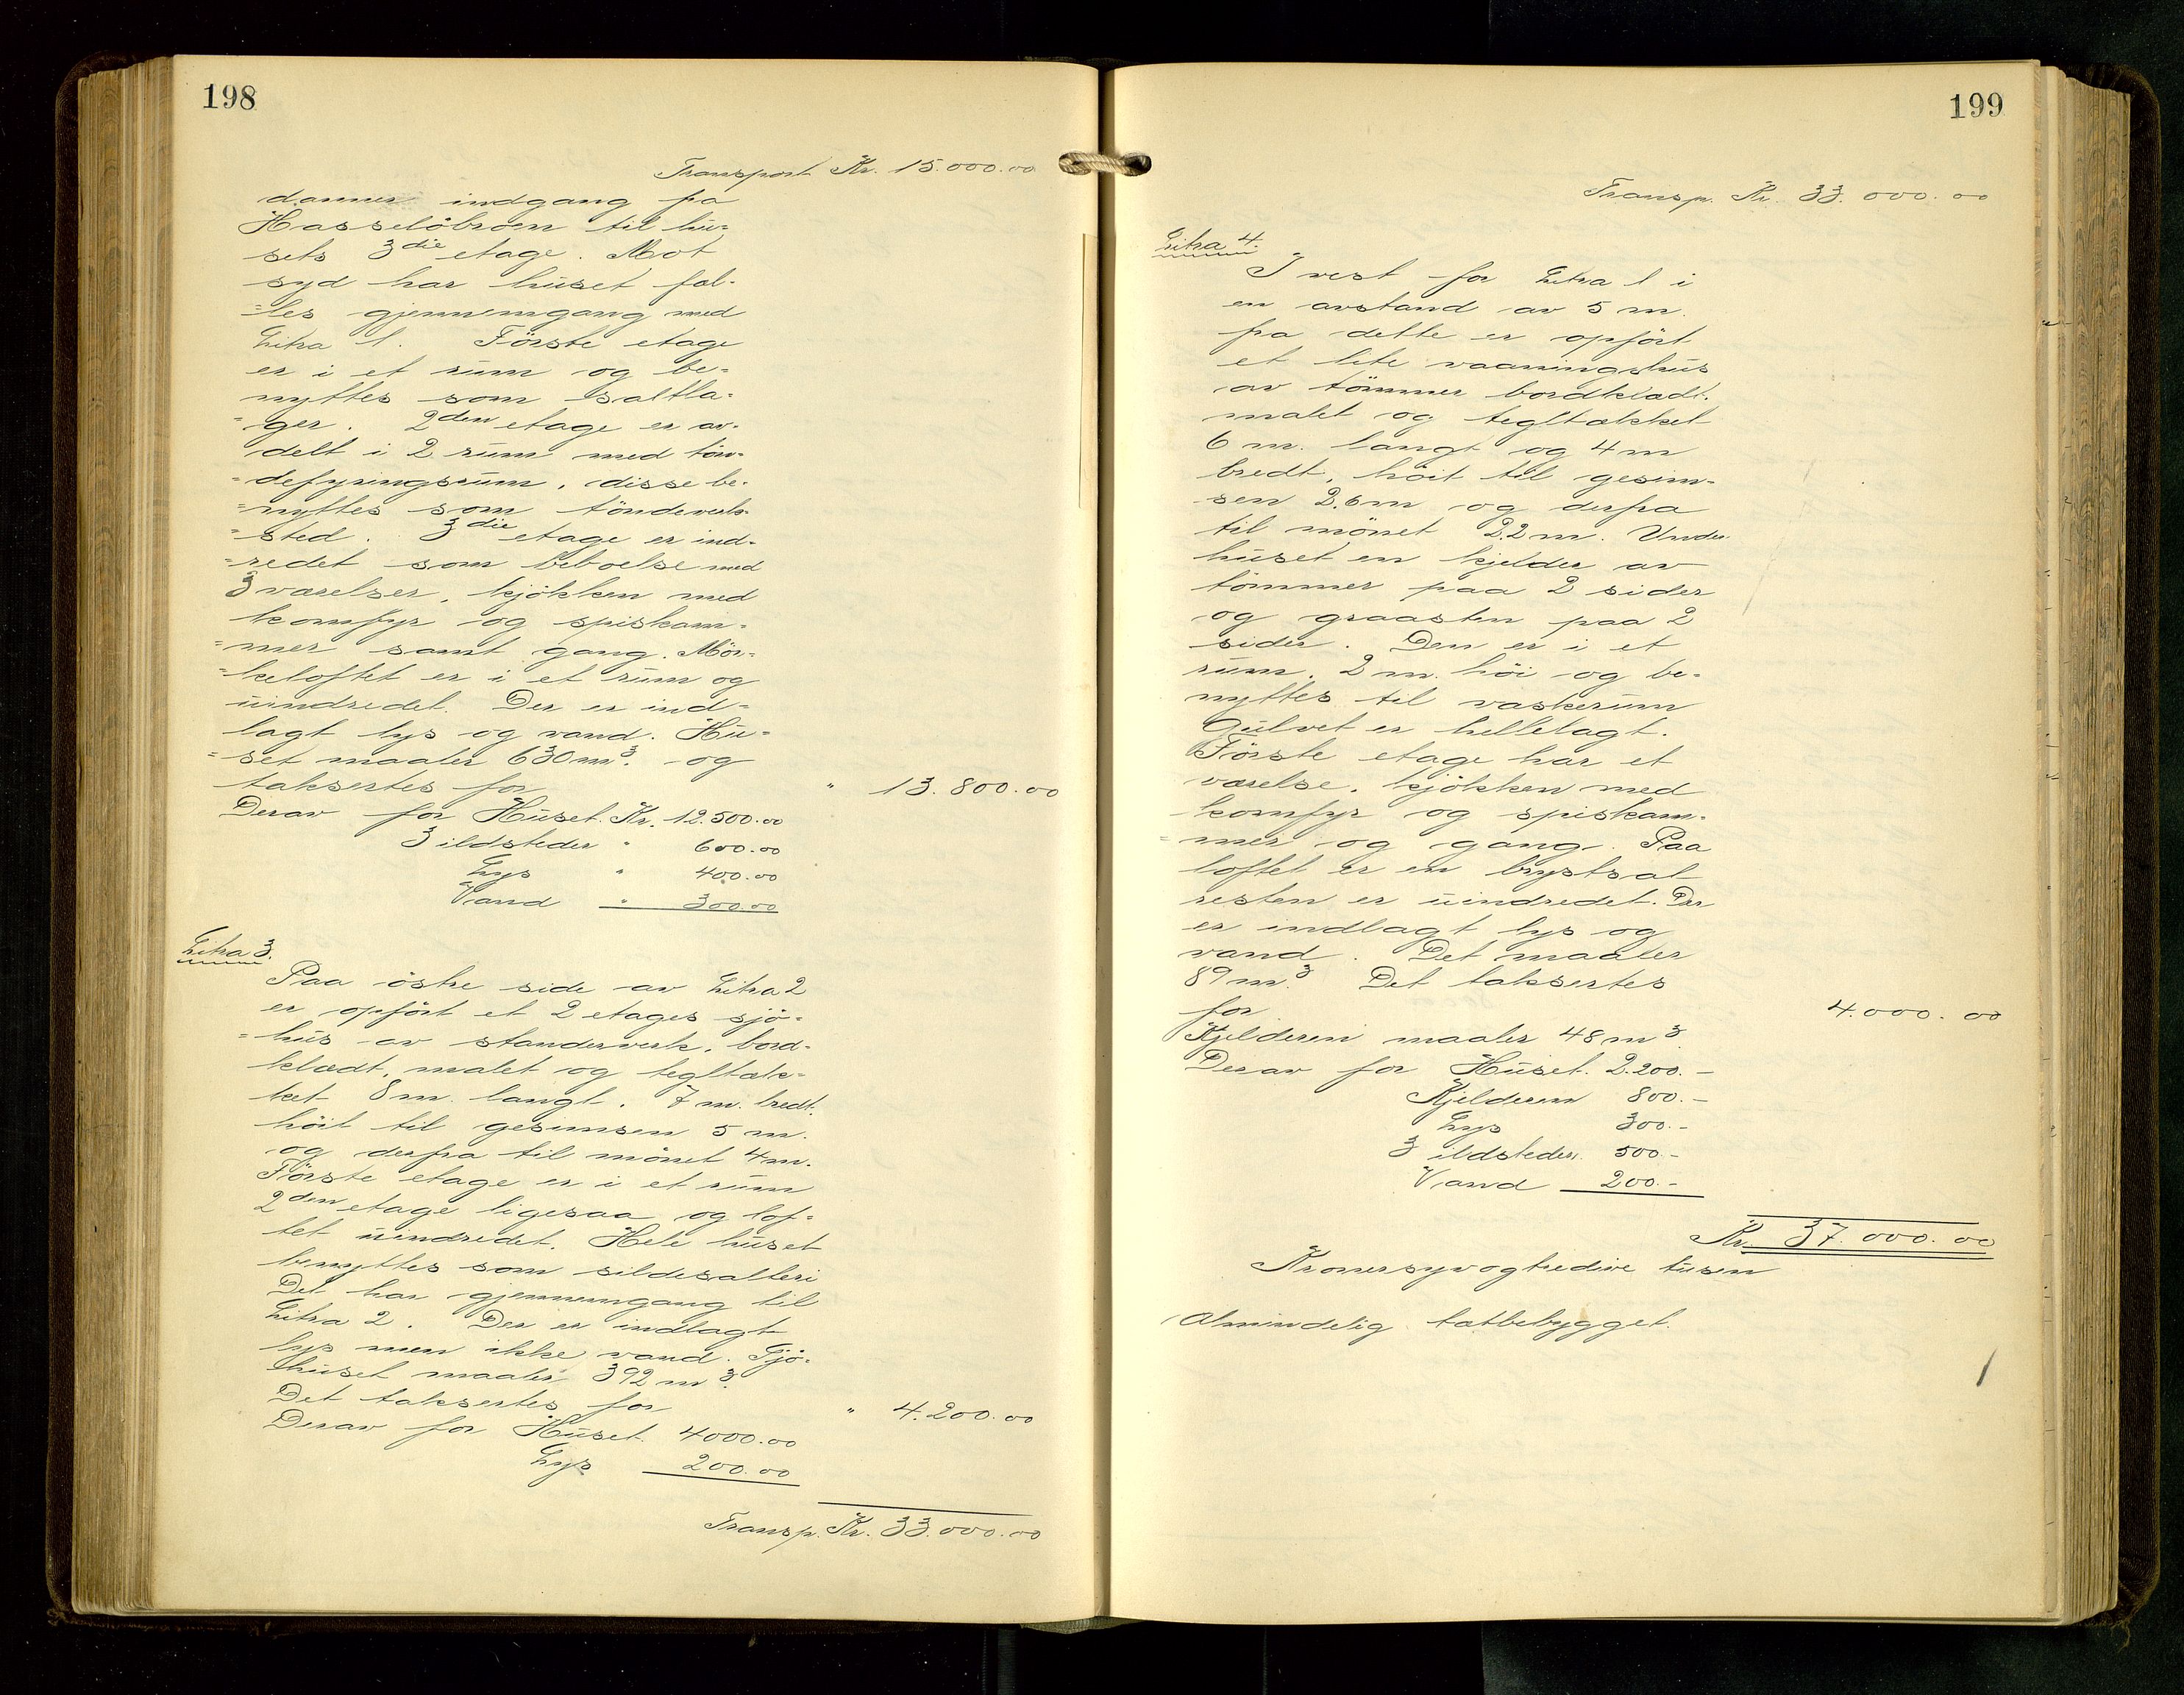 198
Transport Kr. 15.000.00
danner indgang fra
Hasselöbroen til hu-
sets 3die etage. Mot
syd har huset fæl-
=les gjennemgang med
Litra 1. Förste etage
er i et rum og be=
nyttes som saltla=
=ger. 2den etage er av-
delt i 2 rum med tön-
=defyringsrum, disse be-
=nyttes som töndeverk-
=sted. 3die etage er ind-
=redet som beboelse med
3 værelser, kjökken med
komfyr og spiskam=
=mer samt gang. Mör=
=keloftet er i et rum og
uindredet. Der er ind=
lagt lys og vand. Hu=
=set maaler 630 m3. og
taksertes for " 13.800.00
Derav for Huset. Kr. 12.500.00
3 ildsteder " 600.00
Lys " 400.00
Vand " 300.00
Litra 3.
Paa östre side av Litra 2
er opfört et 2 etages sjö=
=hus av standerverk, bord-
klædt, malet og tegltæk=
ket 8 m. langt. 7 m. bredt.
höit til gesimsen 5 m.
og derfra til mönet 4 m.
Förste etage er i et rum
2den etage ligesaa og lof=
tet uindredet. Hele huset
benyttes som sildesalteri
Det har gjennemgang til
Litra 2. Der er indlagt
lys men ikke vand. Sjö-
huset maaler 392 m3.
Det taksertes for " 4.200.00
Derav for Huset. 4000.00
Lys 200.00
Transp. Kr. 33.000.00
199
Transp. Kr. 33.000.00
Litra 4.
I vest for Litra 1 i
en avstand av 5 m.
fra dette er opfört
et lite vaaningshus
av tömmer bordklædt.
malet og tegltækket
6 m. langt og 4 m
bredt, höit til gesim-
sen 2.6 m og derfra
til mönet 2.2 m. Under
huset en kjelder av
tömmer paa 2 sider
og graasten paa 2
sider. Den er i et
rum. 2 m. höi og be-
nyttes til vaskerum
Gulvet er hellelagt.
Förste etage har et
værelse, kjökken med
komfyr og spiskam-
=mer og gang. Paa
loftet er en brystsal
resten er uindredet. Der
er indlagt lys og
vand. Det maaler
89 m3. Det taksertes
for 4.000.00
Kjelderen maaler 48 m3.
Derav for Huset. 2.200.-
Kjelderen 800.-
Lys 300.-
3 ildsteder. 500.-
Vand 200.-
Kr. 37.000.00
Kronersyvogtredive tusen
Almindelig tætbebygget.